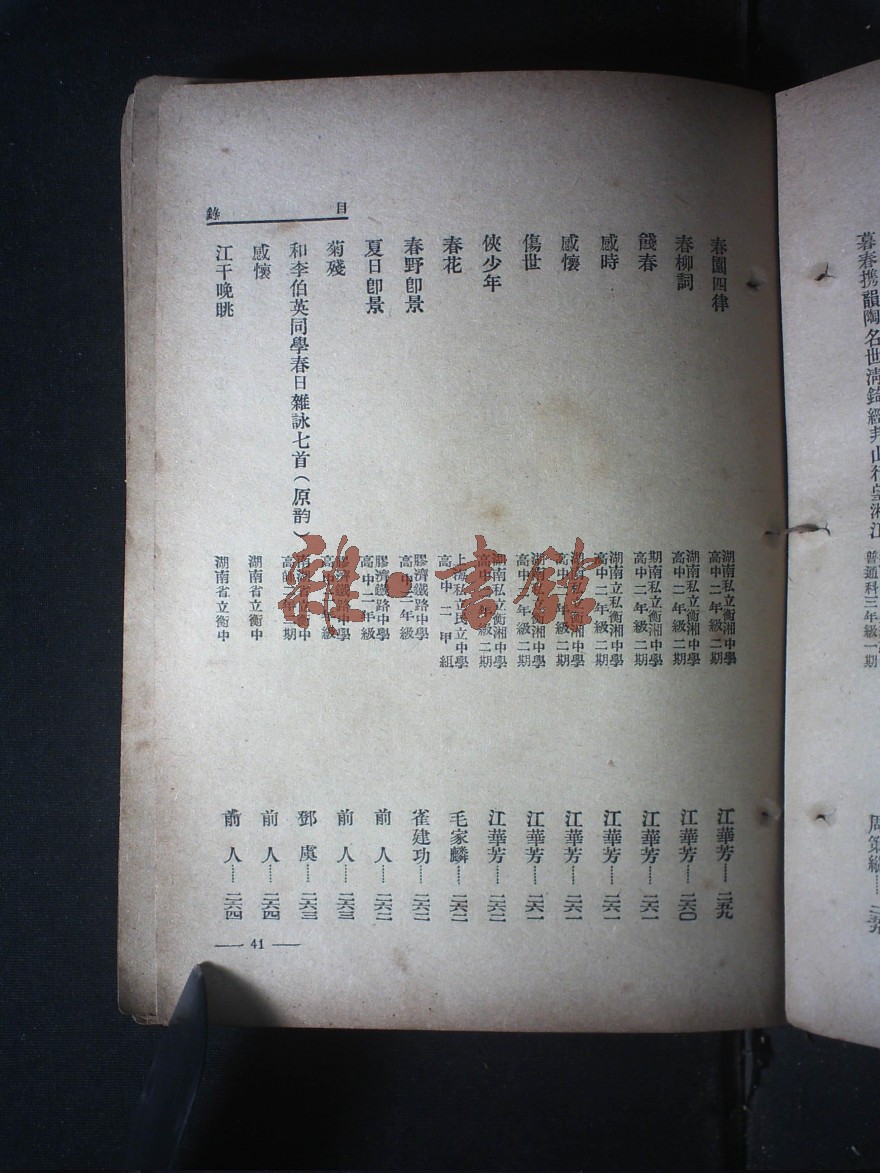 暮春攜韻陶名世淸
普通科三年級一期
春園四律
湖南私立衡湘中學
高中二年級二期
江華芳……二五九
春柳詞
湖南私立衡湘中學
高中二年級二期
江華芳……二六〇
餞春
期南私立衡湘中學
高中二年級二期
江華芳……二六一
感時
湖南私立衡湘中學
高中二年級二期
江華芳……二六一
感懷
湖南私立衡湘中學
高中二年級二期
江華芳……二六一
傷世
湖南私立衡湘中學
高中二年級二期
江華芳……二六一
俠少年
湖南私立衡湘中學
高中二年級二期
江華芳……二六二
春花
上海私立民立中學
高中二甲組
毛家麟……二六二
春野卽景
膠濟鐵路中學
高中二年級
雀建功……二六二
夏日卽景
膠濟鐵路中學
高中二年級
前人……二六二
菊殘
膠濟鐵路中學
高中二年級
前人……二六三
和李伯英同學春日雜詠七首（原韵）
高 二期
鄧虞……二六三
感懷
湖南省立衡中
前人……二六四
江干晚眺
湖南省立衡中
前人……二六四
目錄
— 41 —
雜·書館